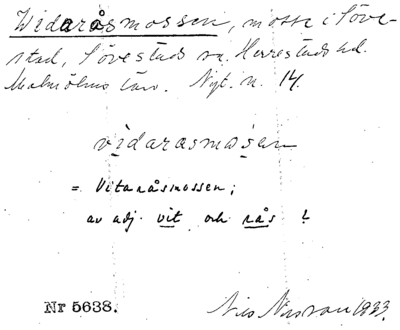 Widaråsmossen, mosse i Söve-
stad, Sövestads sn. Herrestads hd.
Malmöhus län. Nyt. n. 14.
vidarasmosen
= Vitanåsmossen;
av adj. vit och nås ?
Nr 5638.
Nils Nilsson 1933.